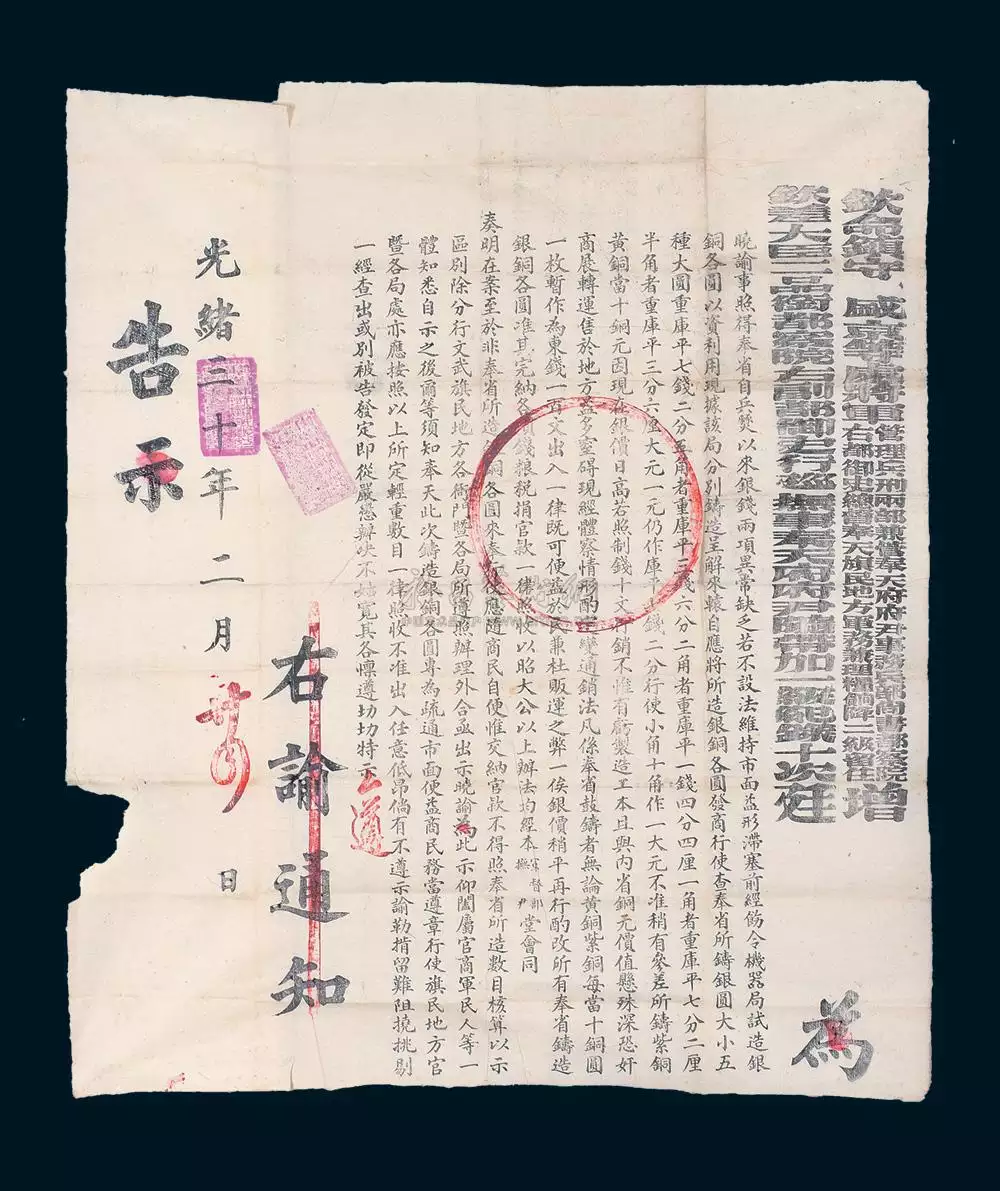 欽命鎮守盛京等處將軍管理兵刑兩部兼管奉天府府尹事務兵部尚書都察院右都御史總督奉天旗民地方軍務兼理糧餉降二級留任增
欽差大臣二品銜都察院左副都御史行巡撫事奉天府府尹隨帶加一級紀錄十次廷
為
曉諭事照得奉省自兵燹以來銀錢兩項異常缺乏若不設法維持市面益形滯塞前經飭令機器局試造銀
銅各圓以資利用現據該局分別鑄造呈解來轅自應將所造銀銅各圓發商行使查奉省所鑄銀圓大小五
種大圓重庫平七錢二分五角者重庫平三錢六分二角者重庫平一錢四分四厘一角者重庫平七分二厘
半角者重庫平三分六厘大元一元仍作庫平七錢二分行使小角十角作一大元不准稍有參差所鑄紫銅
黃銅當十銅元因現在銀價日高若照制錢十文行銷不惟有虧製造工本且與內省銅元價值懸殊深恐奸
商展轉運售於地方益多窒碍現經體察情形酌定變通銷法凡係奉省鼓鑄者無論黃銅紫銅每當十銅圓
一枚暫作為東錢一百文出入一律既可便益於民兼杜販運之弊一俟銀價稍平再行酌改所有奉省鑄造
銀銅各圓准其完納各項錢粮稅捐官款一律照收以昭大公以上辦法均經本軍督部撫尹堂會同
奏明在案至於非奉省所造銀銅各圓來奉行使應隨商民自便惟交納官款不得照奉省所造數目核算以示
區別除分行文武旗民地方各衙門暨各局所遵照辦理外合亟出示曉諭為此示仰闔屬官商軍民人等一
體知悉自示之後爾等須知奉天此次鑄造銀銅各圓專為疏通市面便益商民務當遵章行使旗民地方官
暨各局處亦應按照以上所定輕重數目一律照收不准出入任意低昂倘有不遵示諭勒掯留難阻撓挑剔
一經查出或別被告發定即從嚴懲辦決不姑寬其各懍遵切切特示
遵
右諭通知
光緒三十年二月 日
告示